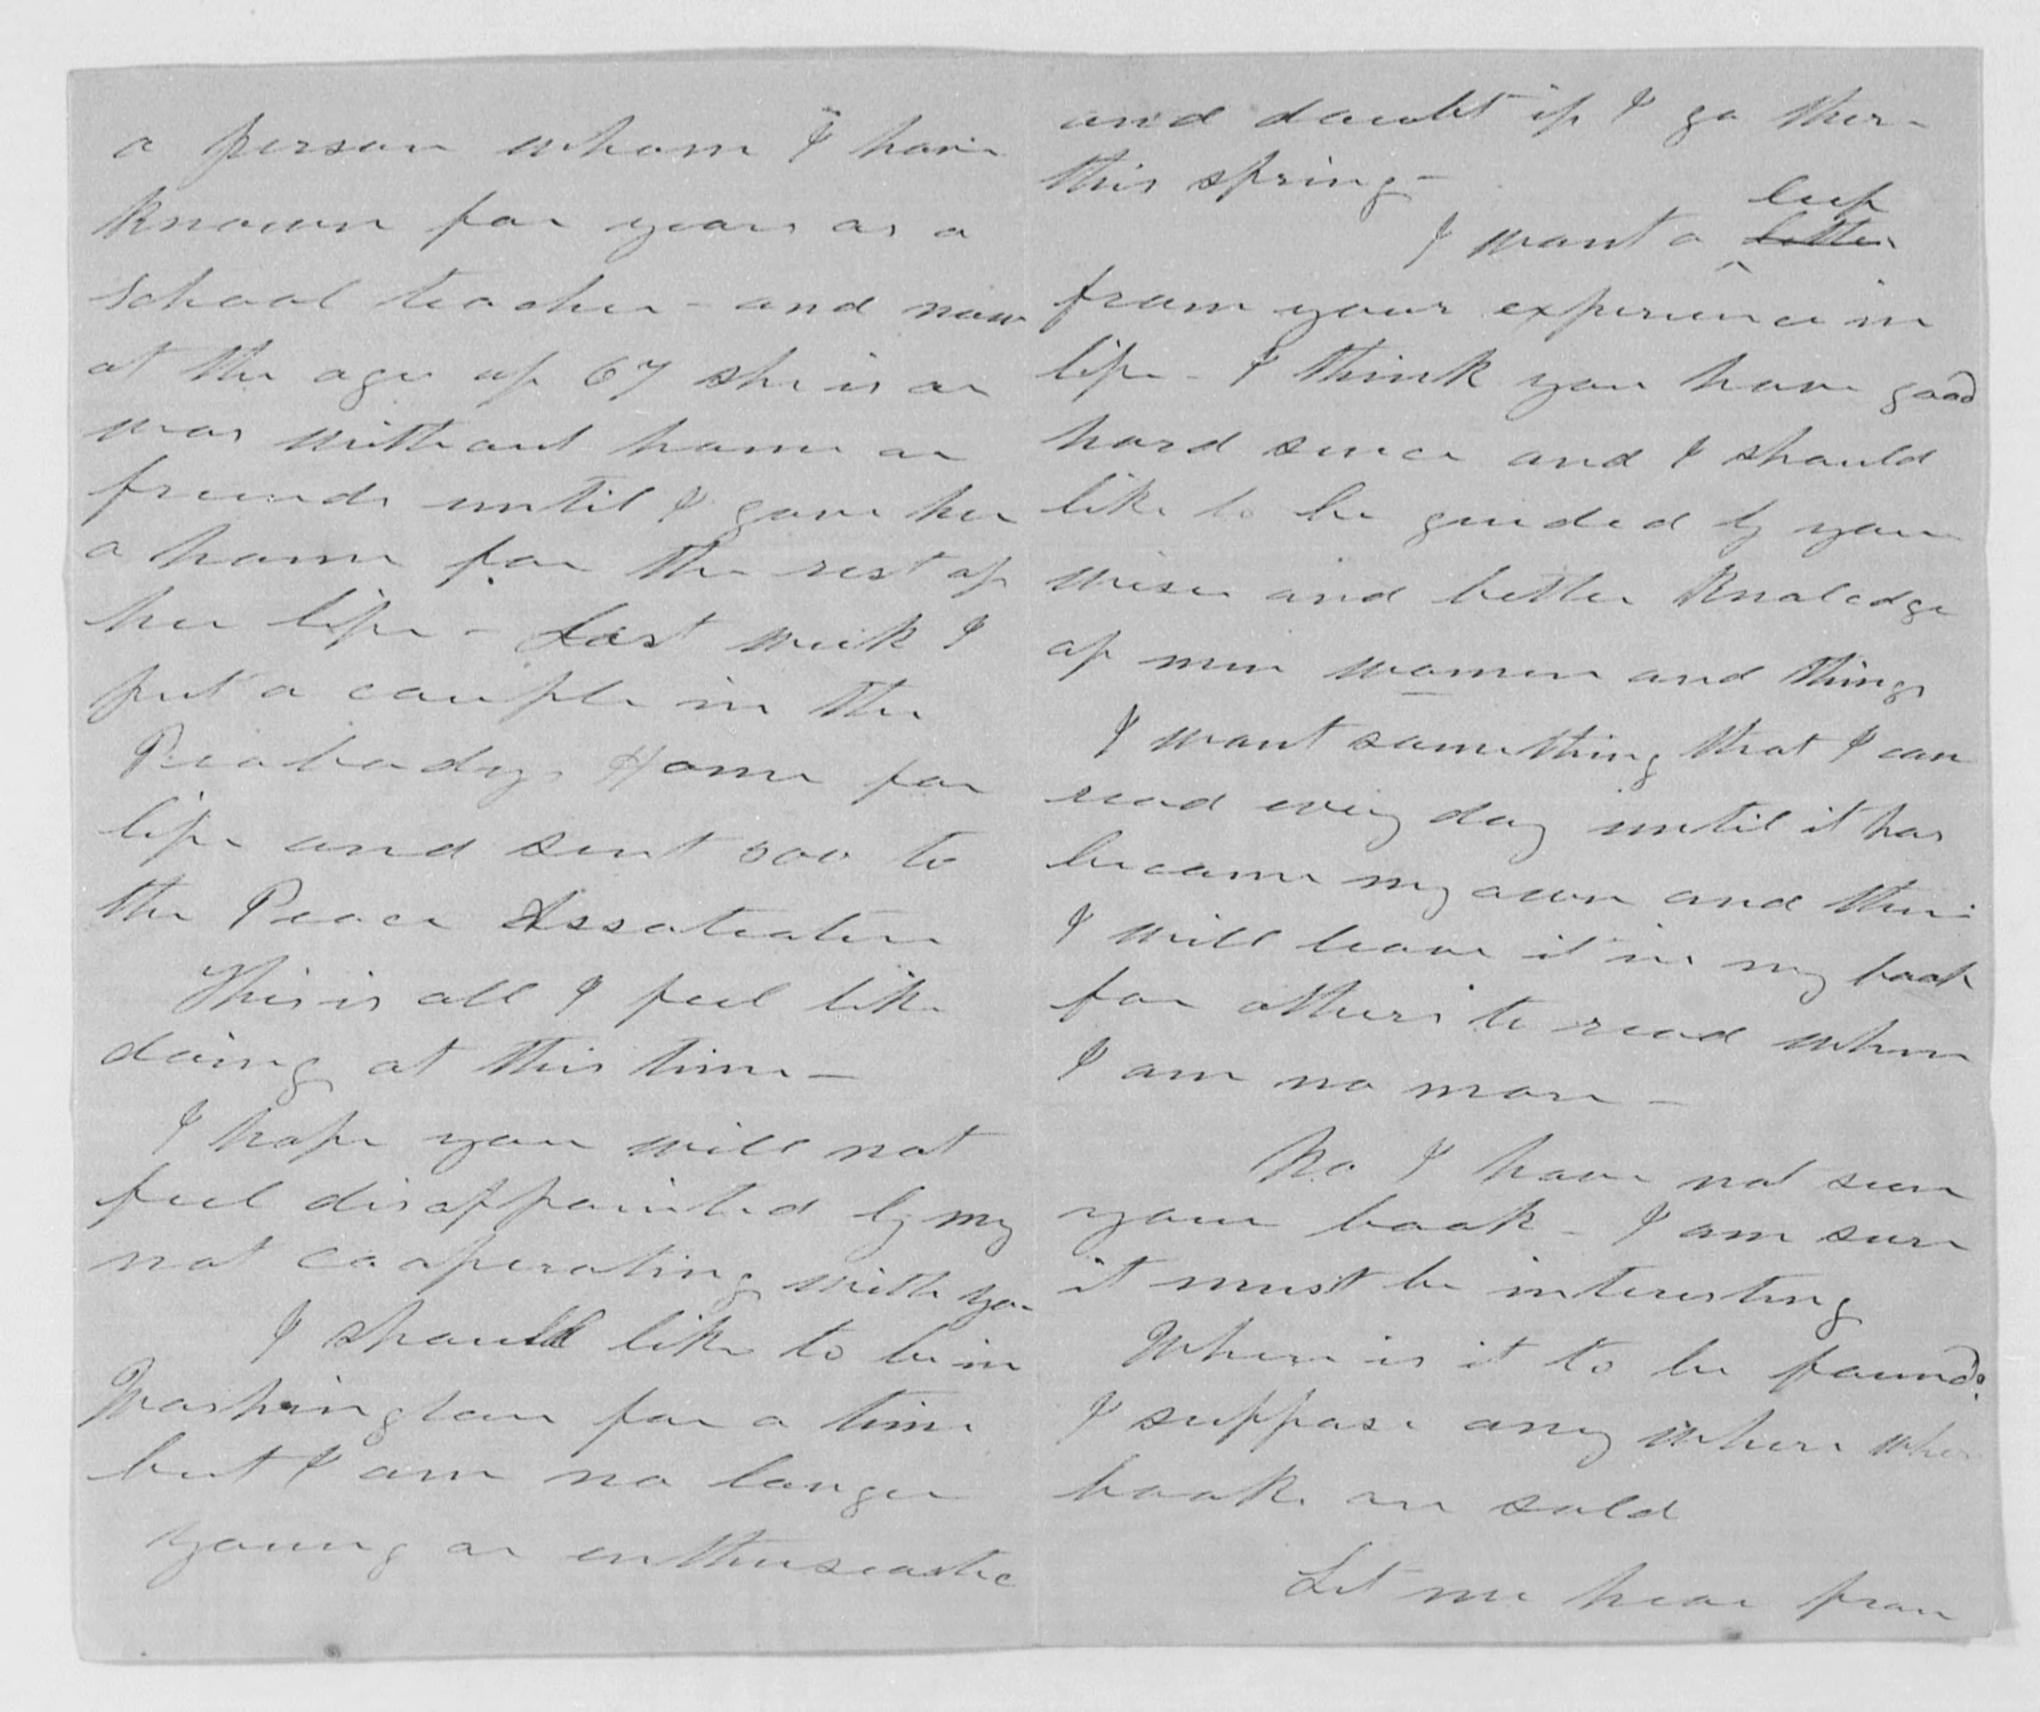 a person whom I have
known for years as a
School teacher - and now
at the age of 67 she is or
was without home or
friends until I gave her
a home for the rest of
her life - Last week I
put a couple in the
Peabodys Home for
life and sent 500 to
the Peace Assotiation
This is all I feel like
doing at this time -
I hope you will not
feel disappointed by my
not cooperating with you
I should like to be in
Washington for a time
but I am no longer
young or enthusiastic
and doubt if I go there
this spring -
I want a ~~letter~~ leaf
from your experience in
life - I think you have good
hard sence and I should
like to be guided by your
wiser and better Knoledge
of men women and things
I want something that I can
read every day until it has
become my own and then
I will leave it in my book
for others to read when
I am no more -
No I have not seen
your book - I am sure
it must be interesting
Where is it to be found?
I suppose any where where
books are sold
Let me hear from